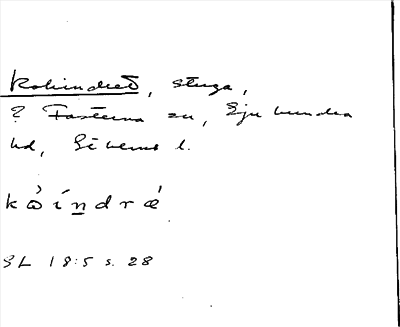 Kohindret, stuga,
? Fasterna sn, Sjuhundra
hd, Sthlms l.
kòíndrǽ
SL 18:5 s. 28